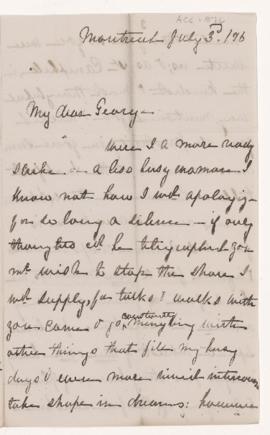 Montreal July 3rd /76
My dear George
were I a more ready
scribe or a less busy mamma I
know not how I wd apologize
for so long a silence — if only
thoughts cd be telegraphed you
mt wish to stop the share I
wd supply, for talks & walks with
you come & go constantly mingling with
other things that fill my busy
days & even more
take shape in dreams: however